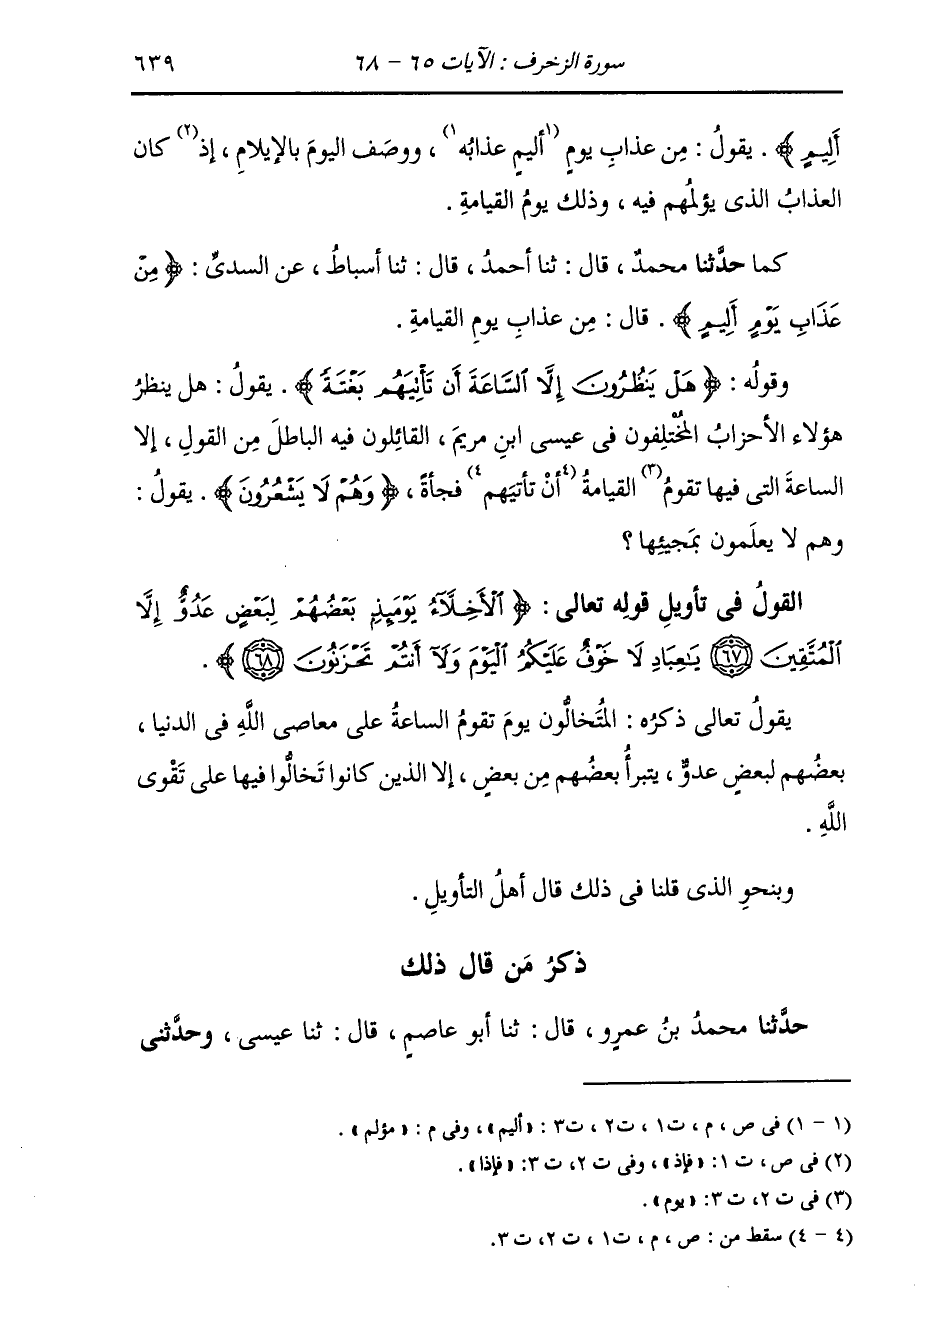 سورة الزخرف : الآيات ٦٥ - ٦٨ ٦٣٩
أَلِيمٍ ﴾ . يقولُ : مِن عذابِ يومٍ (١أليمٍ عذابُه١) ، ووصَف اليومَ بالإيلامِ ، إذ(٢) كان
العذابُ الذى يؤلمُهم فيه ، وذلك يومُ القيامةِ .
كما حدَّثنا محمدٌ ، قال : ثنا أحمدُ ، قال : ثنا أسباطُ ، عن السدىِّ : ﴿ مِنْ
عَذَابِ يَوْمٍ أَلِيمٍ ﴾ . قال : مِن عذابِ يومِ القيامةِ .
وقولُه : ﴿ هَلْ يَنظُرُونَ إِلَّا ٱلسَّاعَةَ أَن تَأْتِيَهُم بَغْتَةً ﴾ . يقولُ : هل ينظرُ
هؤلاء الأحزابُ المُخْتلِفون فى عيسى ابنِ مريمَ ، القائِلون فيه الباطلَ مِن القولِ ، إلا
الساعةَ التى فيها تقومُ(٣) القيامةُ (٤أنْ تأتيَهم٤) فجأةً ، ﴿ وَهُمْ لَا يَشْعُرُونَ ﴾ . يقولُ :
وهم لا يعلَمون بمَجيئِها ؟
القولُ فى تأويلِ قولِه تعالى : ﴿ ٱلْأَخِلَّآءُ يَوْمَئِذٍ بَعْضُهُمْ لِبَعْضٍ عَدُوٌّ إِلَّا
ٱلْمُتَّقِينَ ٦٧ يَٰعِبَادِ لَا خَوْفٌ عَلَيْكُمُ ٱلْيَوْمَ وَلَآ أَنتُمْ تَحْزَنُونَ ٦٨ ﴾ .
يقولُ تعالى ذكرُه : المُتَخالُّون يومَ تقومُ الساعةُ على معاصى اللَّهِ فى الدنيا ،
بعضُهم لبعضٍ عدوٌّ ، يتبرأُ بعضُهم مِن بعضٍ ، إلا الذين كانوا تَخالُّوا فيها على تَقْوى
اللَّهِ .
وبنحوِ الذى قلنا فى ذلك قال أهلُ التأويلِ .
ذكرُ مَن قال ذلك
حدَّثنا محمدُ بنُ عمرٍو ، قال : ثنا أبو عاصمٍ ، قال : ثنا عيسى ، وحدَّثنى
(١ - ١) فى ص ، م ، ت١ ، ت٢ ، ت٣ : «أليم» ، وفى م : «مؤلم» .
(٢) فى ص، ت ١: «فإذ» ، وفى ت ٢، ت ٣: «فإذا» .
(٣) فى ت ٢، ت ٣: «يوم» .
(٤ - ٤) سقط من : ص ، م ، ت١ ، ت ٢، ت ٣.